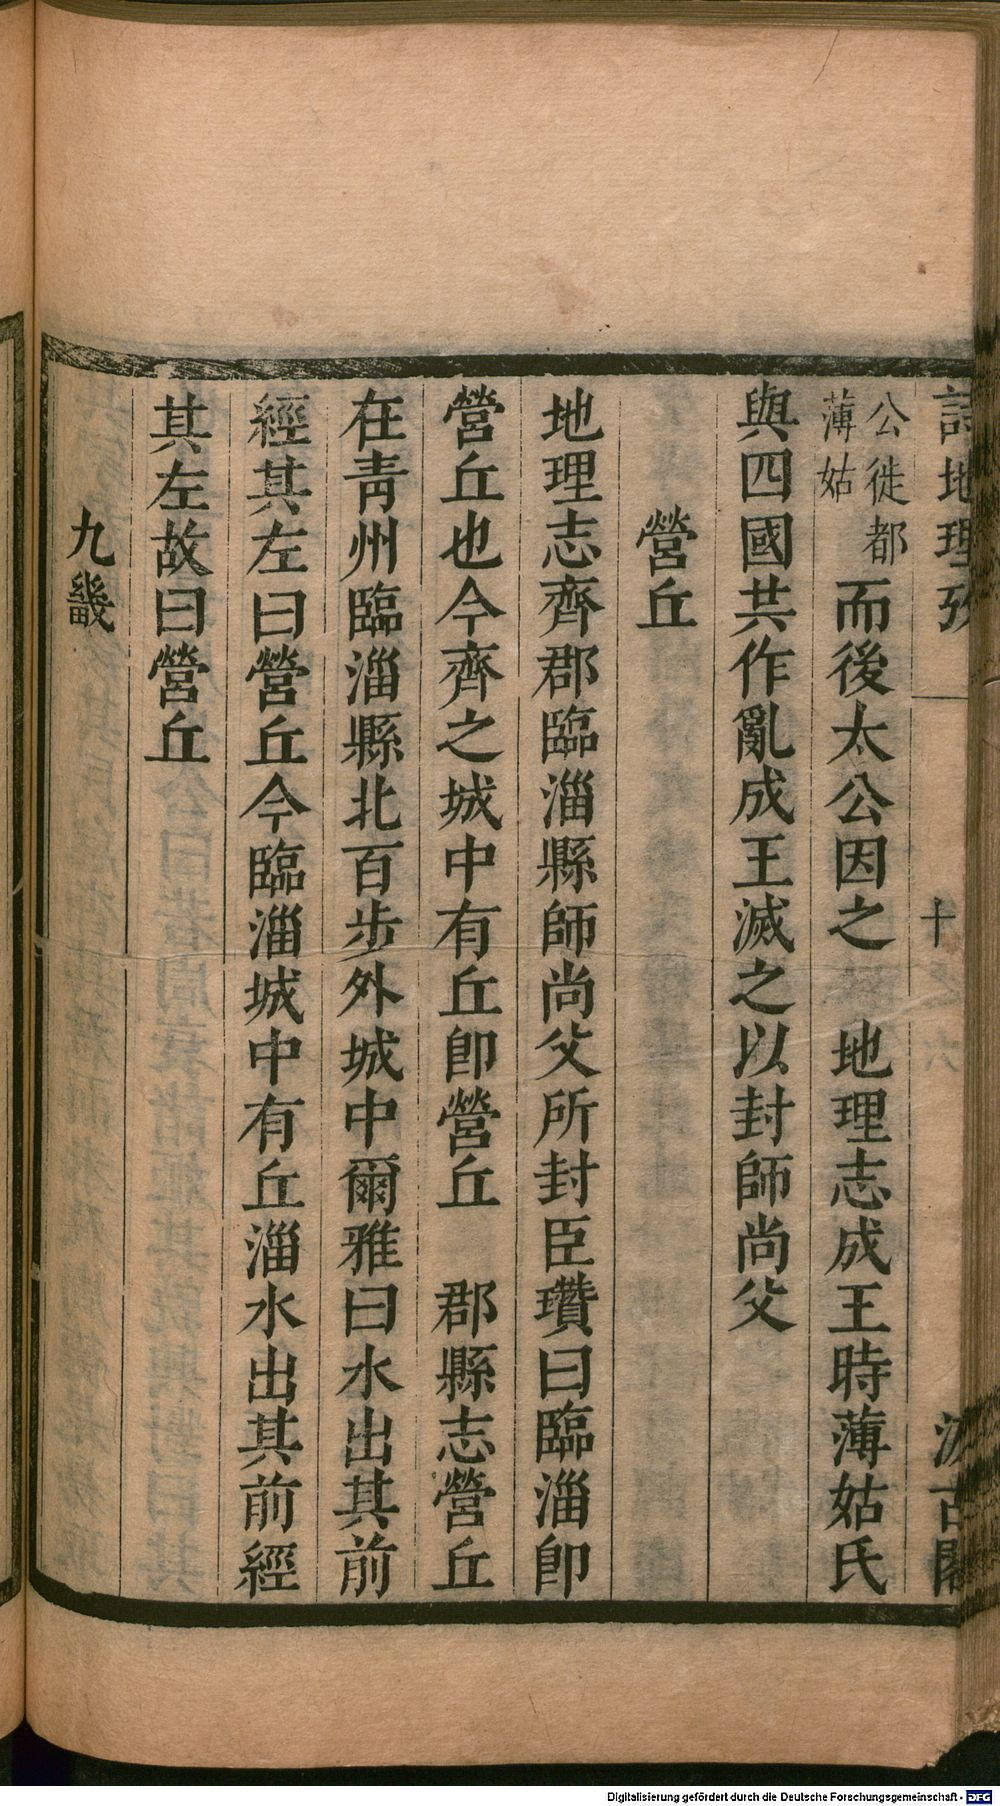 詩地理攷
公徙都
薄姑
而後太公因之　地理志成王時薄姑氏
與四國共作亂成王滅之以封師尚父
營丘
地理志齊郡臨淄縣師尚父所封臣瓚曰臨淄卽
營丘也今齊之城中有丘卽營丘　郡縣志營丘
在青州臨淄縣北百步外城中爾雅曰水出其前
經其左曰營丘今臨淄城中有丘淄水出其前經
其左故曰營丘
九畿
Digitalisierung gefördert durch die Deutsche Forschungsgemeinschaft - DFG